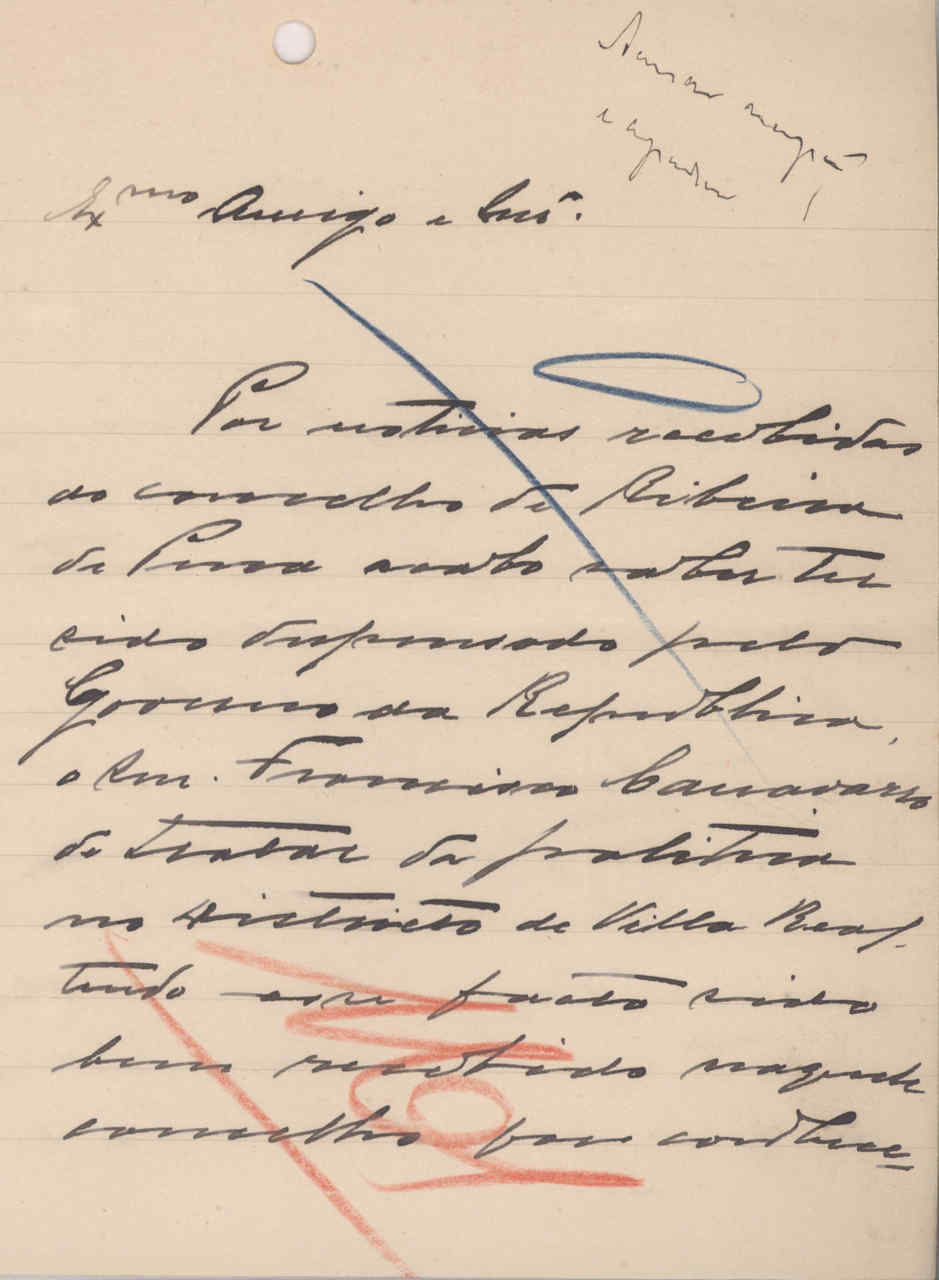 Exmo Amigo e Snr.
Por noticias recebidas
do concelho de Ribeira
de Pena acabo saber ter
sido dispensado pelo
Governo da Republica,
o Snr. Francisco Canavarro
de tratar da politica
no Districto de Villa Real,
tendo esse facto sido
bem recebido naquele
concelho por conhece-